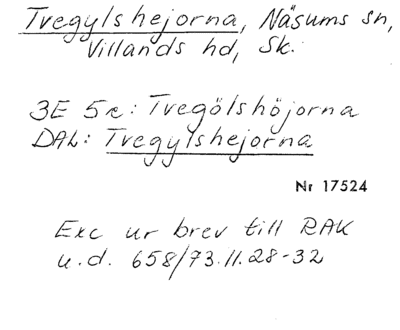 Tvegylshejorna, Näsums sn,
Villands hd, Sk.
3E 5e: Tvegölshöjorna
DAL: Tvegylshejorna
Nr 17524
Exc ur brev till RAK
u.d. 658/73.11.28-32